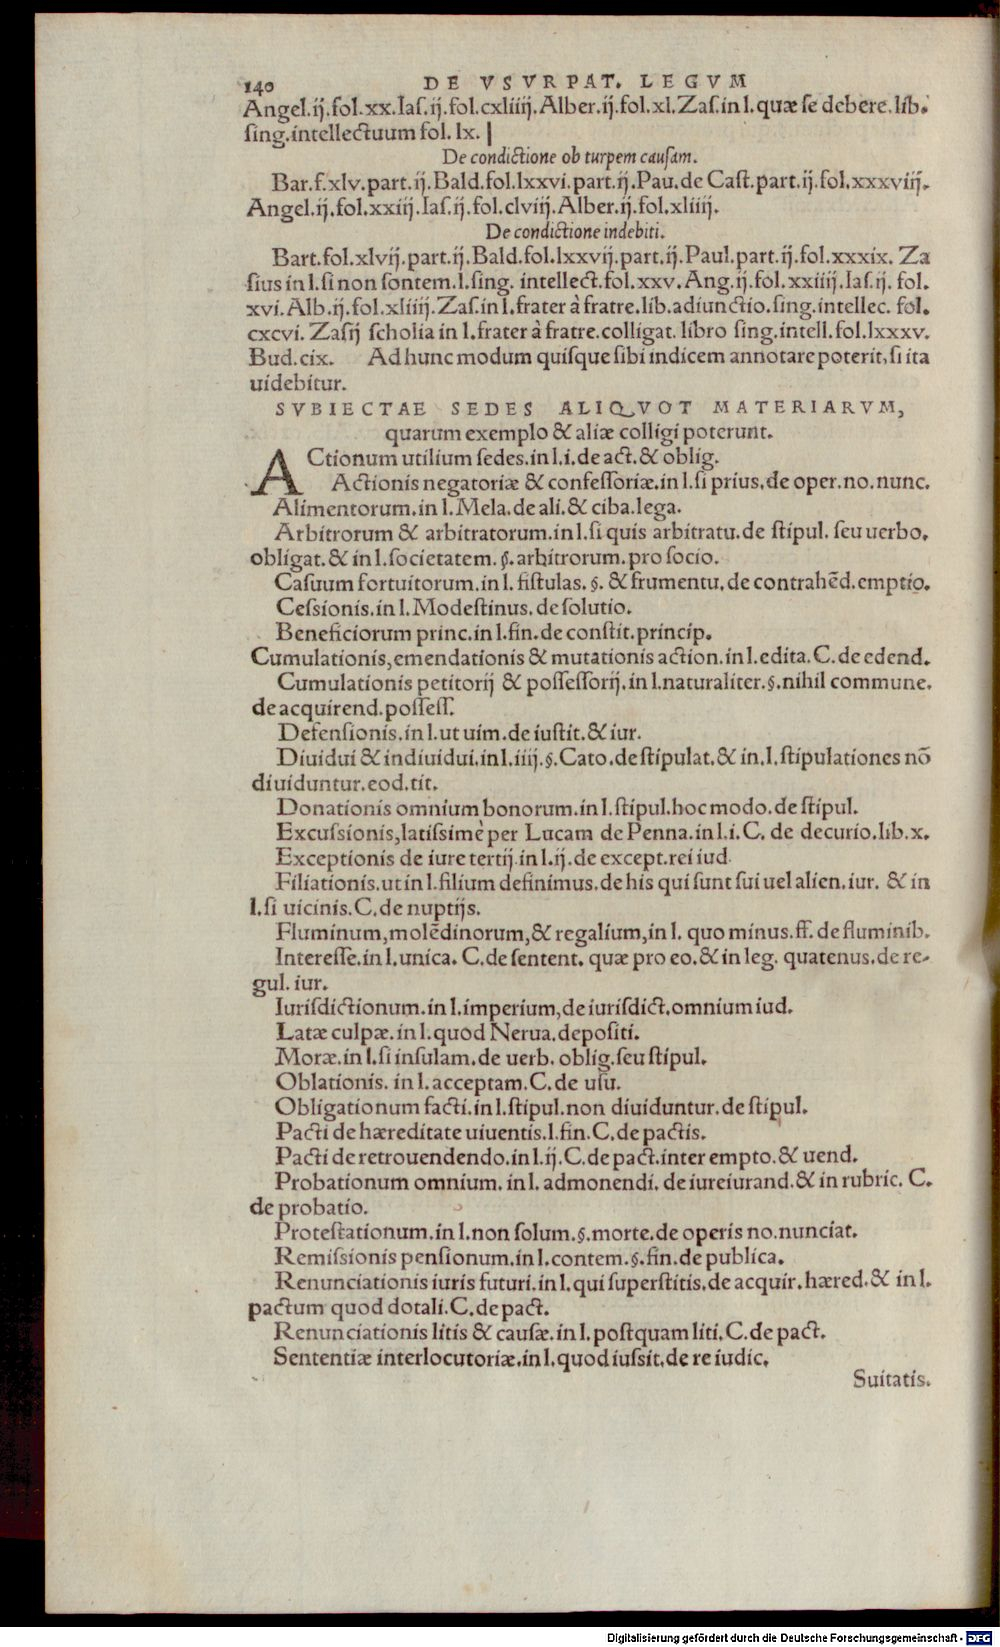 140 DE VSVRPAT. LEGVM
Angel.ij.fol.xx.Iaſ.ij.fol.cxliiij.Alber.ij.fol.xl.Zaſ.in l.quæ ſe debere.lib.
ſing.intellectuum fol. lx. |
De condictione ob turpem cauſam.
Bar.f.xlv.part.ij.Bald.fol.lxxvi.part.ij.Pau.de Caſt.part.ij.fol.xxxviij.
Angel.ij.fol.xxiij.Iaſ.ij.fol.clviij.Alber.ij.fol.xliiij.
De condictione indebiti.
Bart.fol.xlvij.part.ij.Bald.fol.lxxvij.part.ij.Paul.part.ij.fol.xxxix. Za
ſius in l.ſi non ſontem.l.ſing. intellect.fol.xxv.Ang.ij.fol.xxiiij.Iaſ.ij. fol.
xvi.Alb.ij.fol.xliiij.Zaſ.in l.frater à fratre.lib.adiunctio.ſing.intellec. fol.
cxcvi.Zaſij ſcholia in l.frater à fratre.colligat.libro ſing.intell.fol.lxxxv.
Bud.cix. Ad hunc modum quiſque ſibi indicem annotare poterit, ſi ita
uidebitur.
SVBIECTAE SEDES ALIQVOT MATERIARVM,
quarum exemplo & aliæ colligi poterunt.
ACtionum utilium ſedes.in l.i.de act.& oblig.
Actionis negatoriæ & confeſſoriæ.in l.ſi prius.de oper.no.nunc.
Alimentorum.in l.Mela.de ali.& ciba.lega.
Arbitrorum & arbitratorum.in l.ſi quis arbitratu.de ſtipul. ſeu uerbo.
obligat.& in l.ſocietatem.§.arbitrorum.pro ſocio.
Caſuum fortuitorum.in l. fiſtulas. §. & frumentu.de contrahẽd.emptio.
Ceſsionis.in l.Modeſtinus.de ſolutio.
Beneficiorum princ.in l.fin.de conſtit.princip.
Cumulationis,emendationis & mutationis action.in l.edita.C.de edend.
Cumulationis petitorij & poſſeſſorij.in l.naturaliter.§.nihil commune.
de acquirend.poſſeſſ.
Defenſionis.in l.ut uim.de iuſtit.& iur.
Diuidui & indiuidui.in l.iiij.§.Cato.de ſtipulat.& in.l.ſtipulationes nõ
diuiduntur.eod.tit.
Donationis omnium bonorum.in l.ſtipul.hoc modo.de ſtipul.
Excuſsionis,latiſsimè per Lucam de Penna.in l.i.C. de decurio.lib.x.
Exceptionis de iure tertij.in l.ij.de except.rei iud.
Filiationis.ut in l.filium definimus.de his qui ſunt ſui uel alien.iur. & in
l.ſi uicinis.C.de nuptijs.
Fluminum,molẽdinorum,& regalium,in l. quo minus.ff.de fluminib.
Intereſſe.in l.unica. C.de ſentent. quæ pro eo.& in leg. quatenus.de re-
gul. iur.
Iuriſdictionum.in l.imperium,de iuriſdict.omnium iud.
Latæ culpæ.in l.quod Nerua.depoſiti.
Moræ.in l.ſi inſulam.de uerb. oblig.ſeu ſtipul.
Oblationis. in l.acceptam.C.de uſu.
Obligationum facti.in l.ſtipul.non diuiduntur.de ſtipul.
Pacti de hæreditate uiuentis.l.fin.C.de pactis.
Pacti de retrouendendo.in l.ij.C.de pact.inter empto.& uend.
Probationum omnium. in l. admonendi. de iureiurand.& in rubric. C.
de probatio.
Proteſtationum.in l.non ſolum.§.morte.de operis no.nunciat.
Remiſsionis penſionum.in l.contem.§.fin.de publica.
Renunciationis iuris futuri.in l.qui ſuperſtitis.de acquir.hæred.& in l.
pactum quod dotali.C.de pact.
Renunciationis litis & cauſæ.in l.poſtquam liti.C.de pact.
Sententiæ interlocutoriæ.in l.quod iuſsit.de re iudic.
Suitatis.
Digitalisierung gefördert durch die Deutsche Forschungsgemeinschaft - DFG